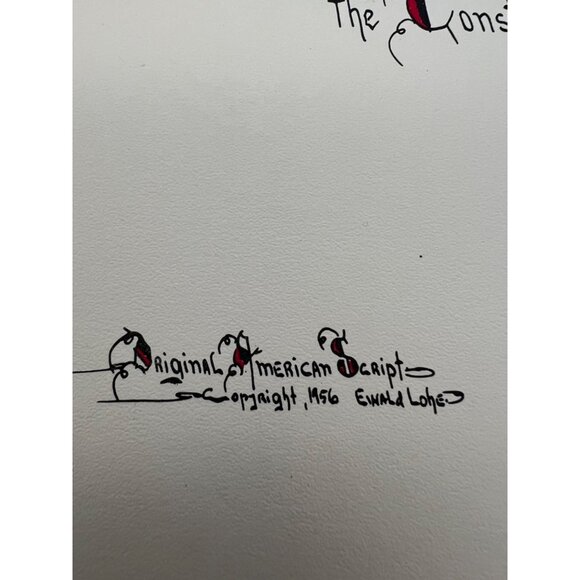 The Cons
Original American Script
Copyright, 1956 Ewald Lohe